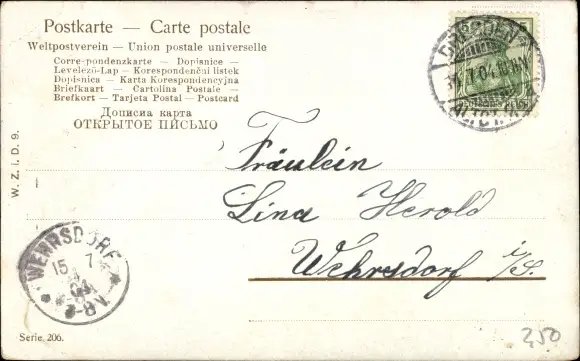 Postkarte — Carte postale
Weltpostverein — Union postale universelle
Correspondenzkarte — Dopisnice —
Levelező-Lap — Korespondenční listek
Dopisnica — Karta Korespondencyjna
Briefkaart — Cartolina Postale —
Brefkort — Tarjeta Postal — Postcard
Дописна карта
ОТКРЫТОЕ ПИСЬМО
DRESDEN
7.04
ALTST.
W. Z. I. D. 9.
Fräulein
Lina Herold
Wehrsdorf i/S.
WEHRSDORF
15 7
04
7-8 N.
Serie. 206.
2,50